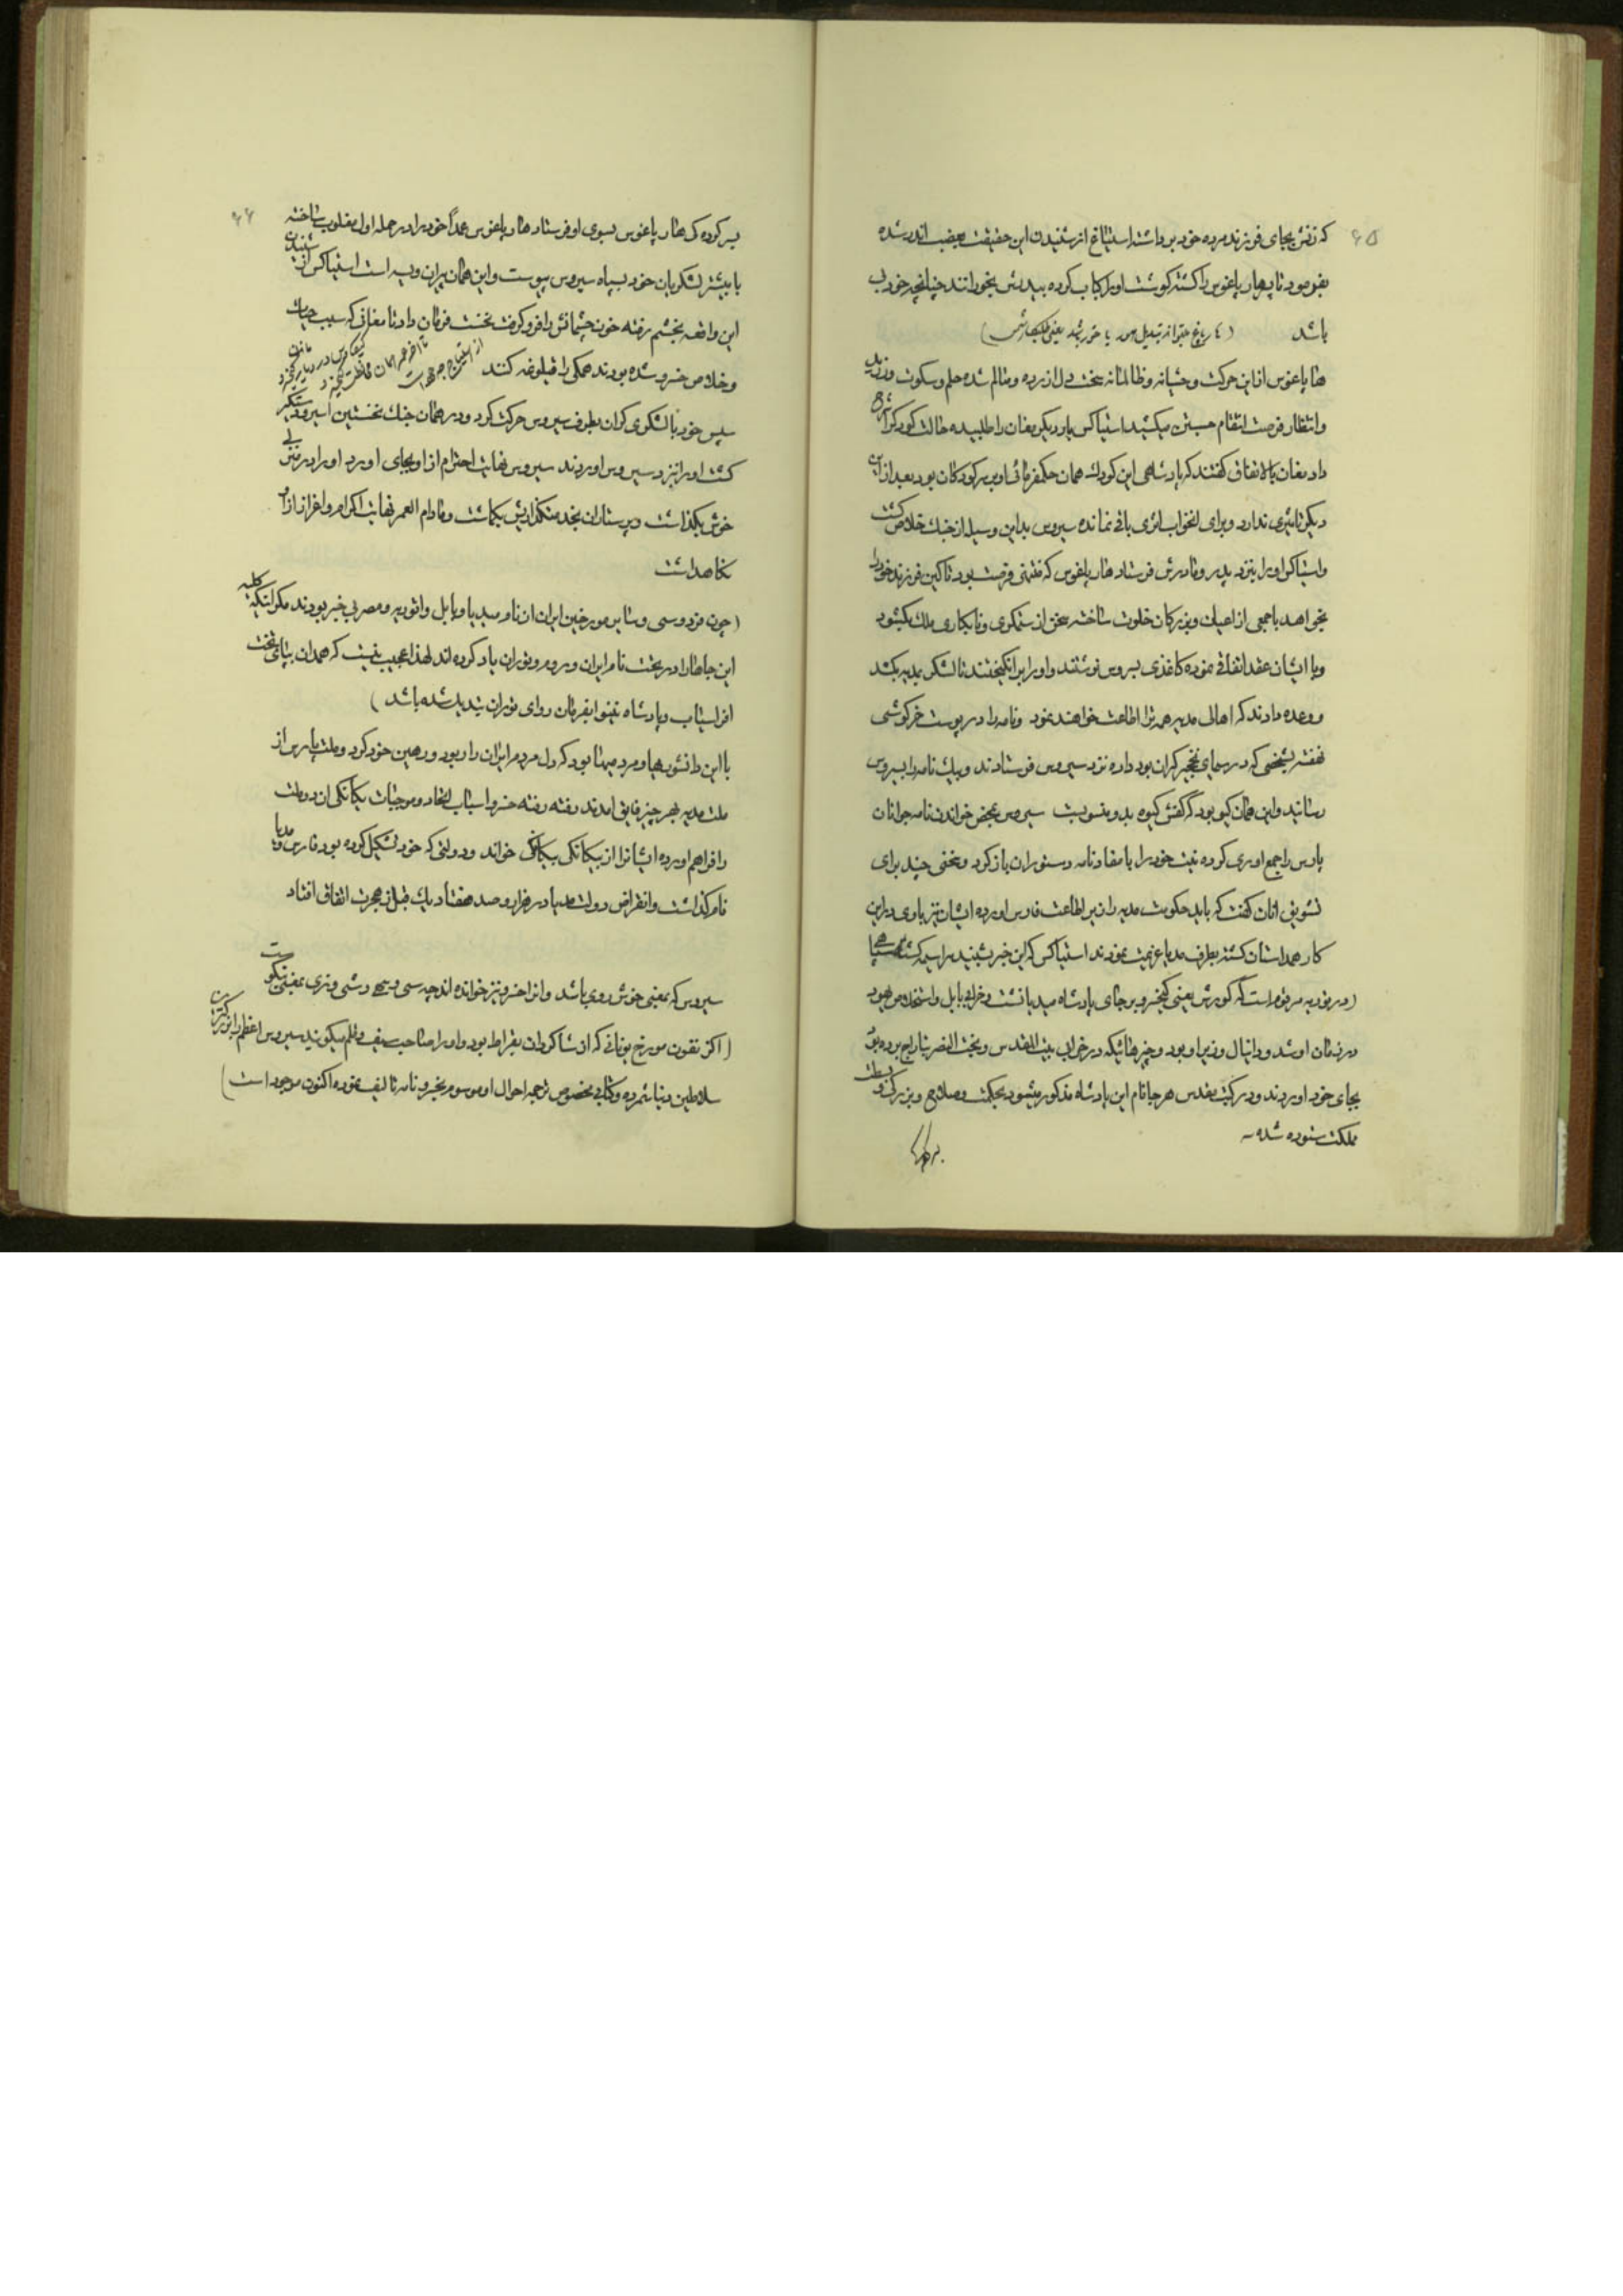 ۶۵
که زنش بجای فرزند مرده خود برداشته استیاغ از شنیدن این حقیقت بغضب اندر شده
بفرمود تا پسر هارپاغوس را کشته کوشت او را کباب کرده به پدرش بخورانند چنانچه خود بی
باشد
هارپاغوس از این حرکت وحشیانه و ظالمانه سخت دل ازرده و متالم شده حلم و سکوت ورزید
وانتظار فرصت انتقام جستن میکشید استیاکس بار دیکر مغان را طلبیده حالت کودک را شرح
داد مغان بالاتفاق کفتند که پادشاهی این کودک همان حکمفرمائی او بر کودکان بود بعد از این
دیکر تاثیری ندارد و برای انخواب اثری باقی نمانده سیروس بداین وسیله از چنک خلاص کشت
واستیاکس او را بنزد پدر و مادرش فرستاد هارپاغوس که منتهز فرصت بود تا کین فرزند خود را
بخواهد با جمعی از اعیان و بزرکان خلوت ساخته سخن از ستمکری و نابکاری ملک بکشود
وبا ایشان عقد اتفاقی نموده کاغذی بسروس نوشتند و او را برانکیختند تا لشکر بمدیه بکشد
و وعده دادند که اهالی مدیه همه ترا اطاعت خواهند نمود ونامه را در پوست خرکوشی
نهفته بشخصی که در سیمای نخجیر کران بود داده نزد سیروس فرستادند و پیک نامه را بسیروس
رسانید واین همان کیو بود که کفش کیوه بدو منسوبست سیروس بمحض خواندن نامه جوانان
پارس را جمع اوری کرده نیت خود را با مفاد نامه دستوران باز کرد و سخنی چند برای
تشویق انان کفت که باید حکومت مدیه را زیر اطاعت فارس اورده ایشان نیز یاوری در این
کار همداستان کشته بطرف مدیا عزیمت نمودند استیاکس که این خبر بشنید سراسیمه کشته سپاهی
(در توریه مرقوم است که کورش یعنی کیخسرو بر جای پادشاه مید بنشست و خرابی بابل واستخلاص یهود
در زمان او شد و دانیال وزیر او بود و چیزهائیکه در خرابی بیت المقدس و بخت النصر بتاراج برده بود
بجای خود اوردند ودر کتب مقدس هر جا نام این پادشاه مذکور میشود بحکمت و صلاح و بزرکی و وسعت
مملکت ستوده شده
۶۶
بسرکرده کی هارپاغوس بسوی او فرستاد هارپاغوس عمداً خود را در حمله اول مغلوب ساخته
با بیشتر لشکریان خود بسپاه سیروس پیوست واین همان پیران ویسه است استیاکس از شنیدن
این واقعه بخشم رفته خون چشمانش را فرو کرفت نخست فرمان داد تا مغانی که سبب حیات
وخلاص خسرو شده بودند همکی را
سپس خود با لشکری کران بطرف سیروس حرکت کرد ودر همان جنک نخستین اسیر و دستکیر
کشت او را نزد سیروس اوردند سیروس نهایت احترام از او بجای اورد او را در منزلی
خوش بکذاشت و پرستاران بخدمتکذاریش بکماشت و مادام العمر نهایت اکرام و اعزاز از او
نکاهداشت
(چون فردوسی و سایر مورخین ایران از نام مید یا و بابل و اثوریه و مصر بی خبر بودند مکر اینکه کلیه
این جاها را در تحت نام ایران و روم و توران یاد کرده اند لهذا عجیب نیست که همدان بپای تخت
افراسیاب و پادشاه نینوا بفرمان روای توران تبدیل شده باشد)
با این دانشوریها و مردمیها بود که دل مردم ایران را ربود و رهین خود کرد و ملت پارس از
ملت مدیه بهر چیز فایق امدند رفته رفته خسرو اسباب اتحاد و موجبات یکانکی ان دو ملت
را فراهم اورده ایشانرا از بیکانکی بیکانکی خواند ودولتی که خود تشکیل کرده بود فارس و مدیا
نام کذاشت و انقراض دولت مدیا در هزار و صد هفتاد یک قبل از هجرت اتفاق افتاد
سیروس که بمعنی خوش روی باشد وانرا خسرو نیز خوانده اند چه سی و سه دشی و نری بمعنی نیکوست
(اکز نفون مورخ یونانی که از شاکردان بقراط بود و او را صاحب سیف و قلم میکویند سیروس اعظم را بزرکترین
سلاطین دنیا شمرده و کتابی مخصوص ترجمه احوال او موسوم بخسرو نامه تالیف نموده اکنون موجود است)